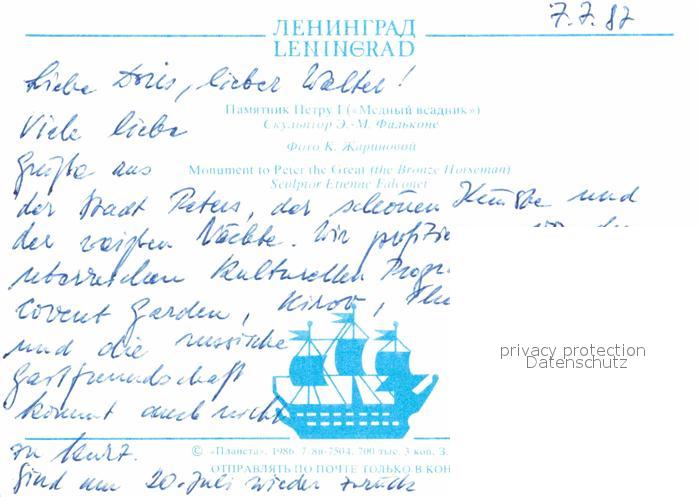 7.7.87
ЛЕНИНГРАД
LENINGRAD
Liebe Doris, lieber Walter!
Памятник Петру I («Медный всадник»)
Скульптор Э.-М. Фальконе
Viele liebe
Фото К. Жариновой
Grüße aus
Monument to Peter the Great (the Bronze Horseman)
Sculptor Etienne Falconet
der Stadt Peters, der schönen Künste und
der weißen Nächte. Wir
kulturellen
Covent Garden, Kirov,
und die russische
privacy protection
Datenschutz
Gastfreundschaft
kommt auch nicht
zu kurz.
© «Планета», 1986. 7-80-7504. 700 тыс. 3 коп. З.
ОТПРАВЛЯТЬ ПО ПОЧТЕ ТОЛЬКО В КОН
Sind am 20. Juli wieder zurück